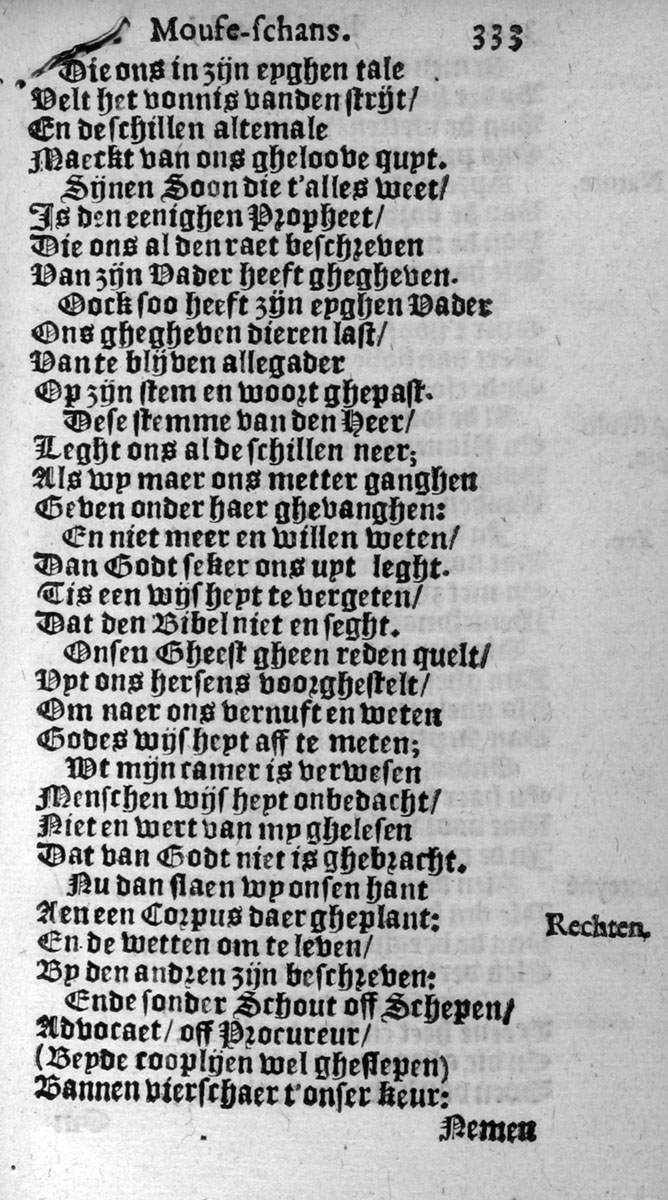 Moufe-schans. 333
Die ons in zijn eyghen tale
Velt het vonnis vanden strijt/
En de schillen altemale
Maeckt van ons gheloove quyt.
Sijnen Soon die t'alles weet/
Is den eenighen Propheet/
Die ons al den raet beschreven
Van zijn Vader heeft ghegheven.
Oock soo heeft zijn eyghen Vader
Ons ghegheven dieren last/
Van te blijven allegader
Op zijn stem en woort ghepast.
Dese stemme van den Heer/
Leght ons al de schillen neer;
Als wy maer ons metter ganghen
Geven onder haer ghevanghen:
En niet meer en willen weten/
Dan Godt seker ons uyt leght.
Tis een wijsheyt te vergeten/
Dat den Bibel niet en seght.
Onsen Gheest gheen reden quelt/
Uyt ons hersens voorghestelt/
Om naer ons vernuft en weten
Godes wijsheyt aff te meten;
Wt mijn camer is verwesen
Menschen wijsheyt onbedacht/
Niet en wert van my ghelesen
Dat van Godt niet is ghebracht.
Nu dan slaen wy onsen hant
Aen een Corpus daer gheplant:
Rechten.
En de wetten om te leven/
By den andren zijn beschreven:
Ende sonder Schout off Schepen/
Advocaet/ off Procureur/
(Beyde cooplijen wel gheslepen)
Bannen vierschaer t'onser keur:
Nemen